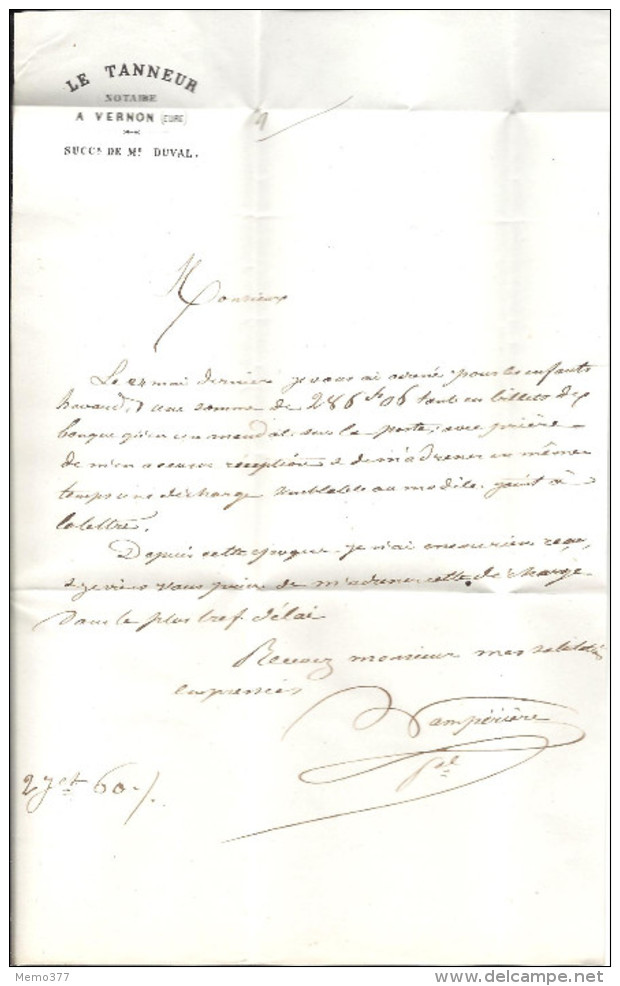 LE TANNEUR
NOTAIRE
A VERNON (EURE)
SUCCR. DE ME. DUVAL.
Monsieur
Le 24 mai dernier je vous ai adressé pour les enfants
une somme de 286 f 06 tant en billets de
banque qu'en un mandat sur la poste, avec prière
de m'en accuser réception & de m'adresser en même
temps une décharge semblable au modèle joint à
la lettre.
Depuis cette époque je n'ai encore rien reçu,
& je viens vous prier de m'adresser cette décharge
dans le plus bref délai
Recevez monsieur mes salutations
empressées
pal
2 Jet 60
Memo377
www.delcampe.net